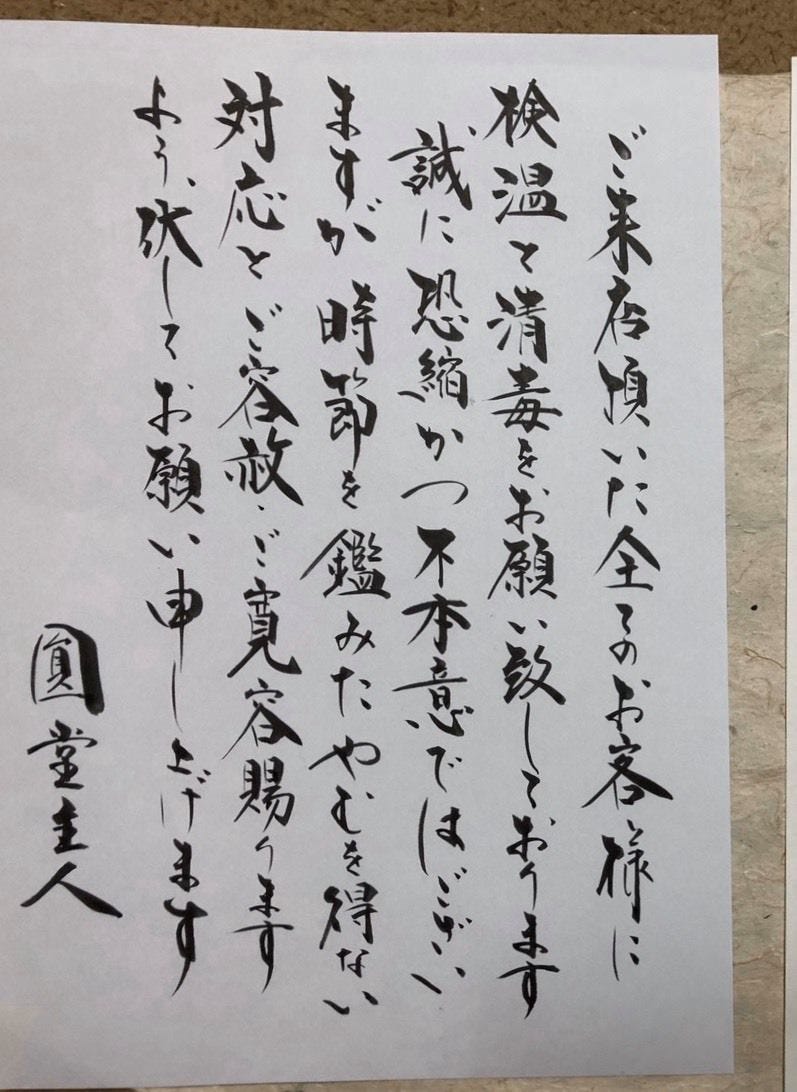 ご来店頂いた全てのお客様に
検温と消毒をお願い致しております
誠に恐縮かつ不本意ではござい
ますが時節を鑑みたやむを得ない
対応とご容赦・ご寛容賜ります
よう、伏してお願い申し上げます
圓堂主人